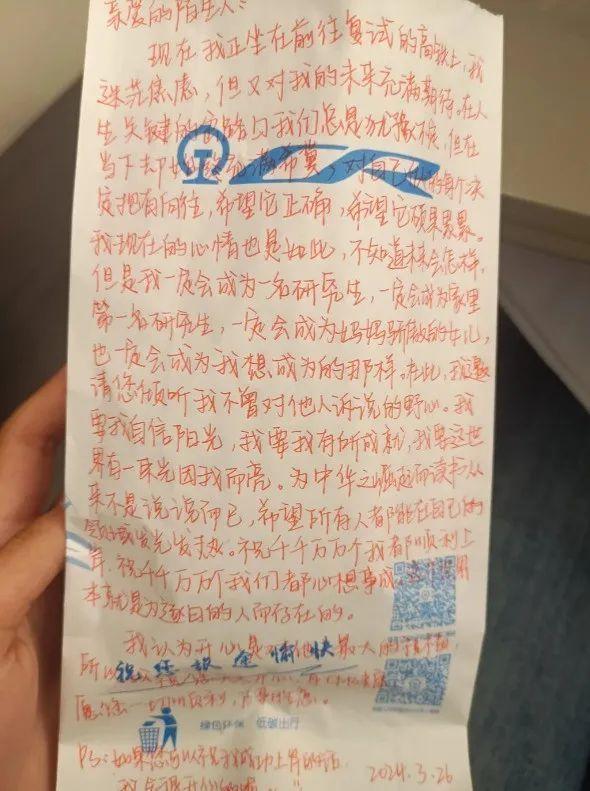 亲爱的陌生人:
现在我正坐在前往复试的高铁上,我
迷茫焦虑,但又对我的未来充满期待。在人
生关键的路口我们总是犹豫不决,但在
当下却满希冀,对自己的每个决
定抱有向往,希望它正确,希望它硕果累累。
我现在的心情也是如此,不知道未来会怎样,
但是我一定会成为一名研究生,一定会成为家里
第一名研究生,一定会成为妈妈骄傲的女儿,
也一定会成为我想成为的那样。在此,我邀
请您倾听我不曾对他人诉说的野心。我
要我自信阳光,我要我有所成就,我要这世
界有一束光因我而亮。为中华之崛起而读书从
来不是说说而已,希望所有人都能在自己的
领域发光发热。祝千千万万个我都顺利上
岸,祝千千万万个我们都心想事成。
本就是为逐日的人而存在的。
我认为开心是最大的
所以
祝您旅途愉快
愿您一切顺利,
绿色环保 低碳出行
Ps:如果您可以祝我成功上岸的话
我会很开心的
2024.3.26